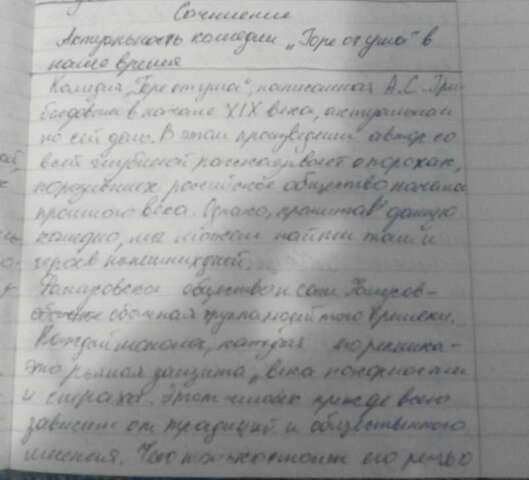 Сочинение
Актуальность комедии „Горе от ума" в
наше время
Комедия „Горе от ума", написанная А.С. Гри-
боедовым в начале XIX века, актуальна и
по сей день. В этом произведении автор со
всей глубиной рассказывает о пороках,
поразивших российское общество начала
прошлого века. Однако, прочитав данную
комедию, мы можем найти там и
героев нынешних дней.
Фамусовское общество и сам Фамусов-
сборная группа людей того времени.
Каждый монолог, каждая его реплика-
это рьяная защита „века покорности
и страха". Этот человек прежде всего
зависит от традиций и общественного
мнения. Чего только стоит его